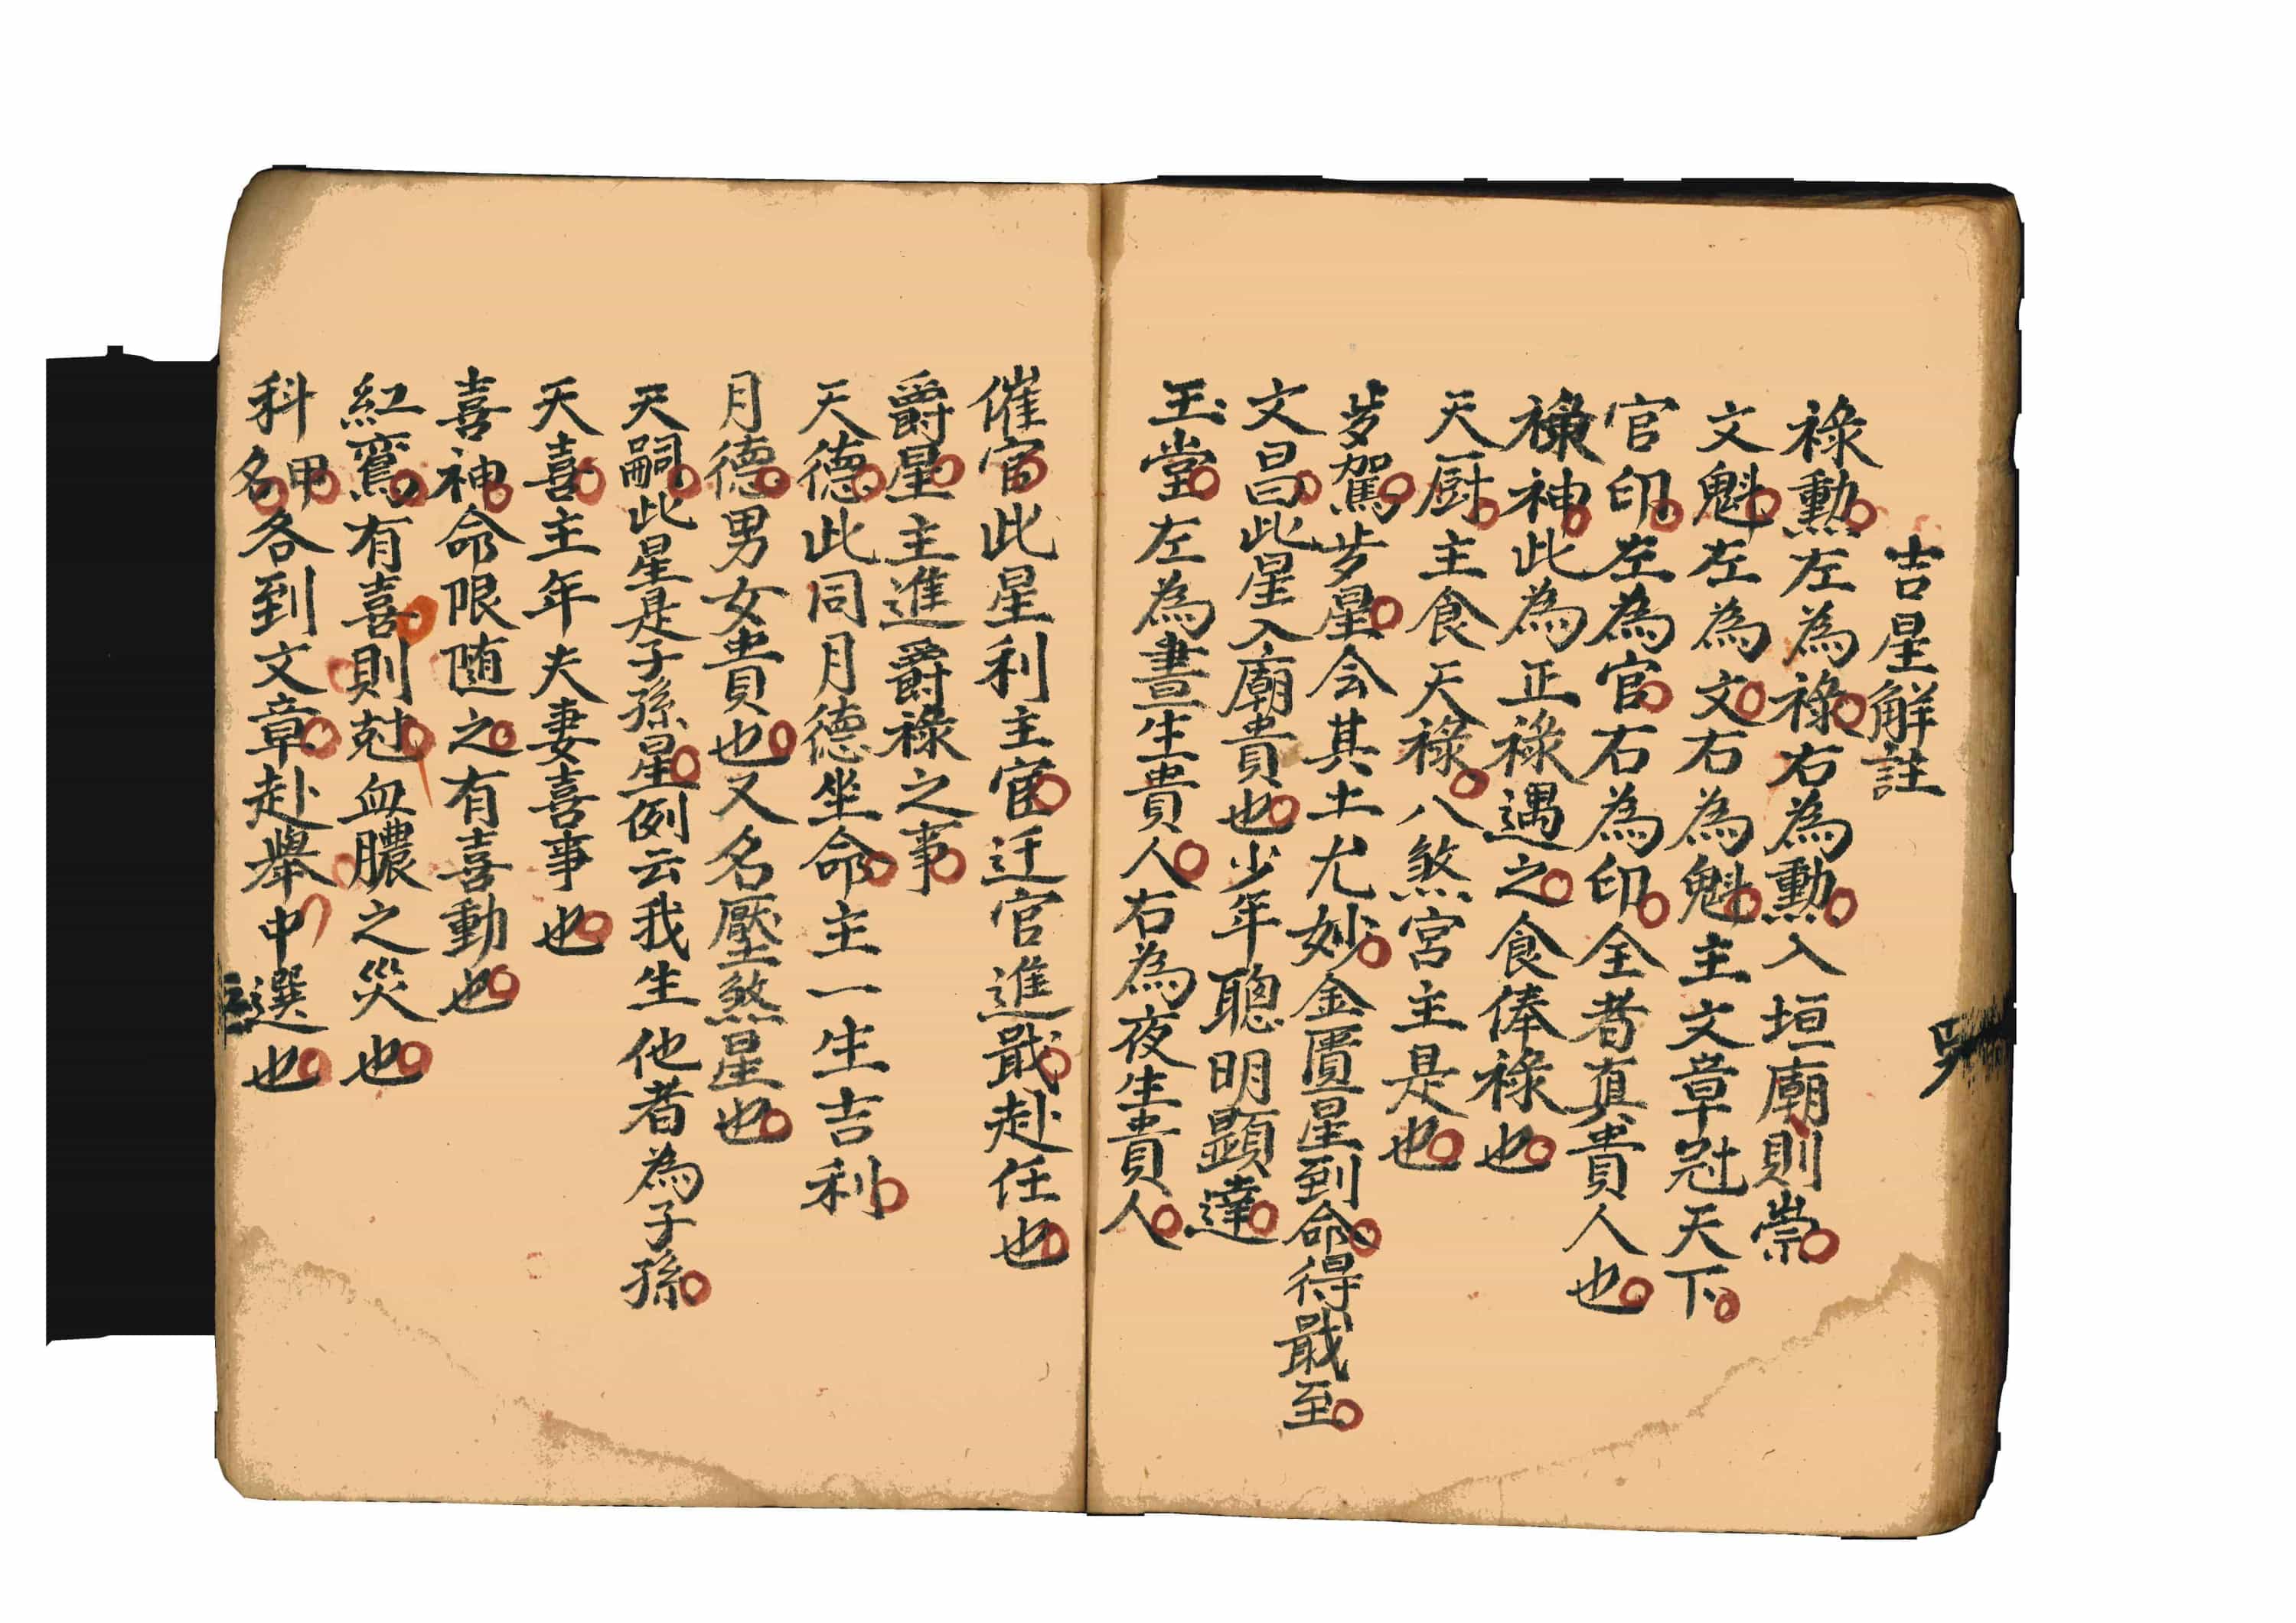 吉星解註
祿勲左為祿右為勲入垣廟則崇
文魁左為文右為魁主文章冠天下
官印左為官右為印全者真貴人也
祿神此為正祿遇之食俸祿也
天厨主食天祿八煞宮主是也
歩駕歩星会其土尤妙金匱星到命得戢至
文昌此星入廟貴也少年聰明顕達
玉堂左為晝生貴人右為夜生貴人
催官此星利主官迁官進戢赴任也
爵星主進爵祿之事
天德此同月德坐命主一生吉利
月德男女貴也又名壓煞星也
天嗣此星是子孫星例云我生他者為子孫
天喜主年夫妻喜事也
喜神命限随之有喜動也
紅鸞有喜則尅血膿之災也
科名科甲各到文章赴舉中選也